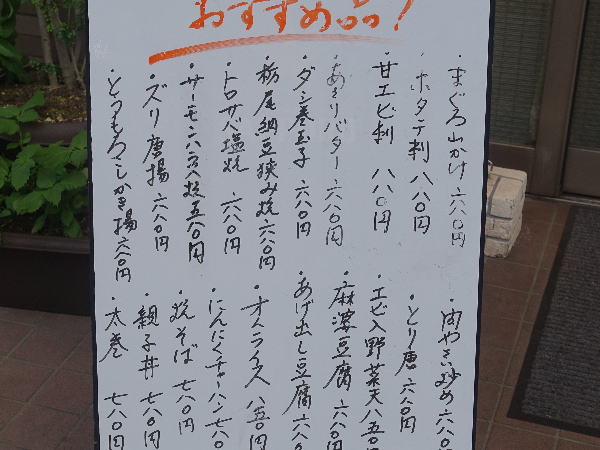 おすすめ品!
・まぐろ山かけ 六八〇円
・ホタテ刺 八八〇円
・甘エビ刺 八八〇円
・あさりバター 六八〇円
・ダシ巻玉子 六八〇円
・栃尾納豆挟み焼 六八〇円
・トロサバ塩焼 六八〇円
・サーモンハラス焼 五八〇円
・ズリ唐揚 六八〇円
・とうもろこしかき揚 六八〇円
・肉やさい炒め 六八〇円
・とり唐 六八〇円
・エビ入野菜天 八五〇円
・麻婆豆腐 六八〇
・あげ出し豆腐 六八〇
・オムライス 八五〇円
・にんにくチャーハン 七八〇
・焼そば 七八〇円
・親子丼 七八〇円
・太巻 七八〇円